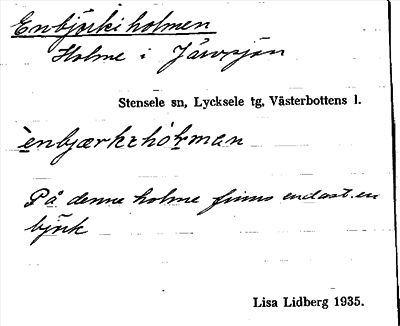 Enbjörkiholmen
Holme i Järvsjön
Stensele sn, Lycksele tg, Västerbottens l.
ènbjærkɩhól̥man
På denne holme finns endast en
björk
Lisa Lidberg 1935.